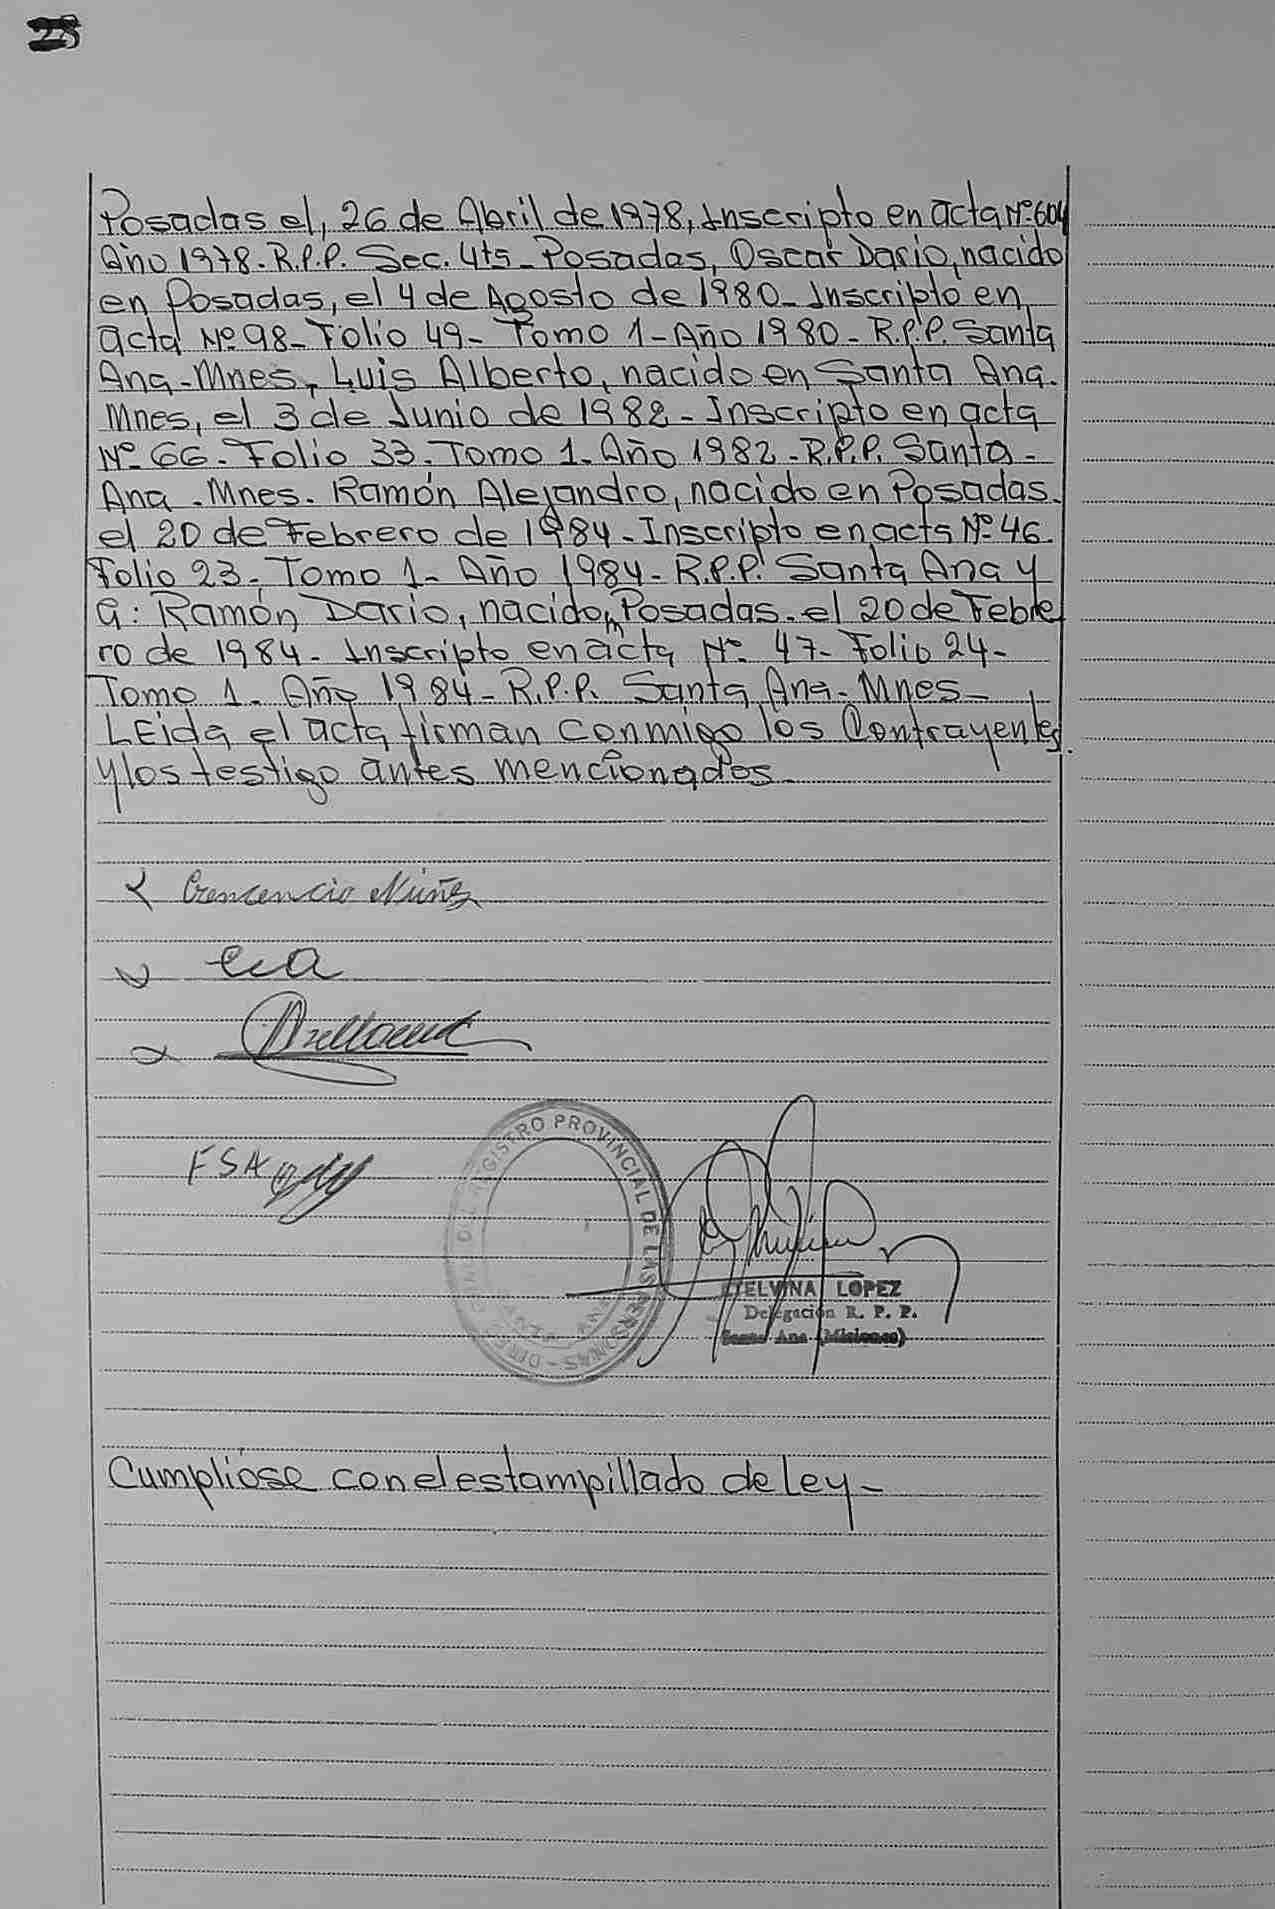 28
Posadas el, 26 de Abril de 1978, Inscripto en acta Nº 604
Año 1978. R.P.P. Sec. 4ta - Posadas, Oscar Dario, nacido
en Posadas, el 4 de Agosto de 1980 - Inscripto en
acta Nº 98 - Folio 49 - Tomo 1 - Año 1980 - R.P.P. Santa
Ana - Mnes, Luis Alberto, nacido en Santa Ana.
Mnes, el 3 de Junio de 1982 - Inscripto en acta
Nº 66 - Folio 33 - Tomo 1 - Año 1982 - R.P.P. Santa -
Ana - Mnes. Ramón Alejandro, nacido en Posadas.
el 20 de Febrero de 1984 - Inscripto en acta Nº 46 -
Folio 23 - Tomo 1 - Año 1984 - R.P.P. Santa Ana y
a: Ramón Dario, nacido en Posadas. el 20 de Febre
ro de 1984 - Inscripto en acta Nº 47 - Folio 24 -
Tomo 1 - Año 1984 - R.P.P. Santa Ana - Mnes -
LEida el acta firman conmigo los Contrayentes
y los testigo antes mencionados -
Crencencio Núñez
FSA
REGISTRO PROVINCIAL DE LAS PERSONAS -
ETELVINA LOPEZ
Delegación R. P. P.
Santa Ana (Misiones)
Cumplióse con el estampillado de ley -